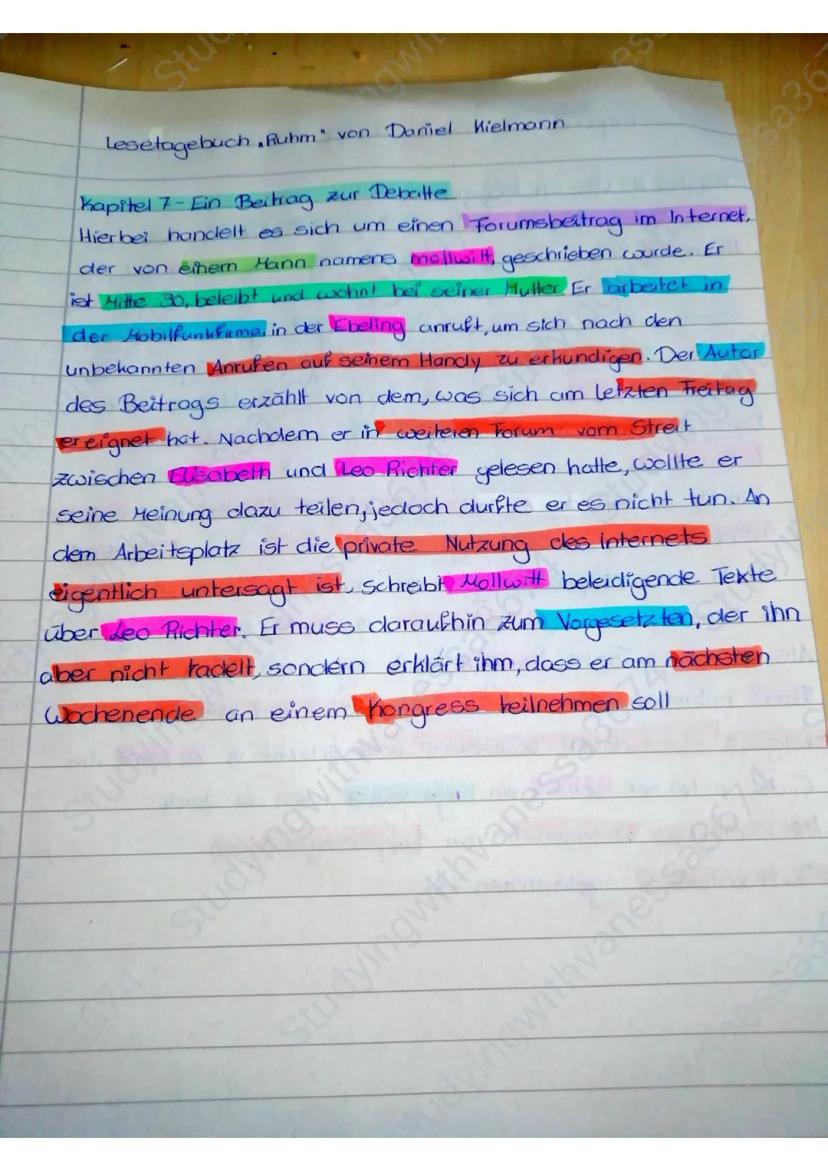 Lesetagebuch „Ruhm" von Daniel Kielmann
Kapitel 7 - Ein Beitrag zur Debatte
Hierbei handelt es sich um einen Forumsbeitrag im Internet,
der von einem Mann namens mollwitt, geschrieben wurde. Er
ist Mitte 30, beleibt und wohnt bei seiner Mutter. Er arbeitet in
der Mobilfunkfirma, in der Ebeling anruft, um sich nach den
unbekannten Anrufen auf seinem Handy zu erkundigen. Der Autor
des Beitrags erzählt von dem, was sich am letzten Freitag
ereignet hat. Nachdem er in weiteren Forum vom Streit
zwischen Elisabeth und Leo Richter gelesen hatte, wollte er
seine Meinung dazu teilen, jedoch durfte er es nicht tun. An
dem Arbeitsplatz ist die private Nutzung des Internets
eigentlich untersagt ist, schreibt Mollwitt beleidigende Texte
über Leo Richter. Er muss daraufhin zum Vorgesetzten, der ihn
aber nicht tadelt, sondern erklärt ihm, dass er am nächsten
Wochenende an einem Kongress teilnehmen soll
Studyingwithvanessa3674